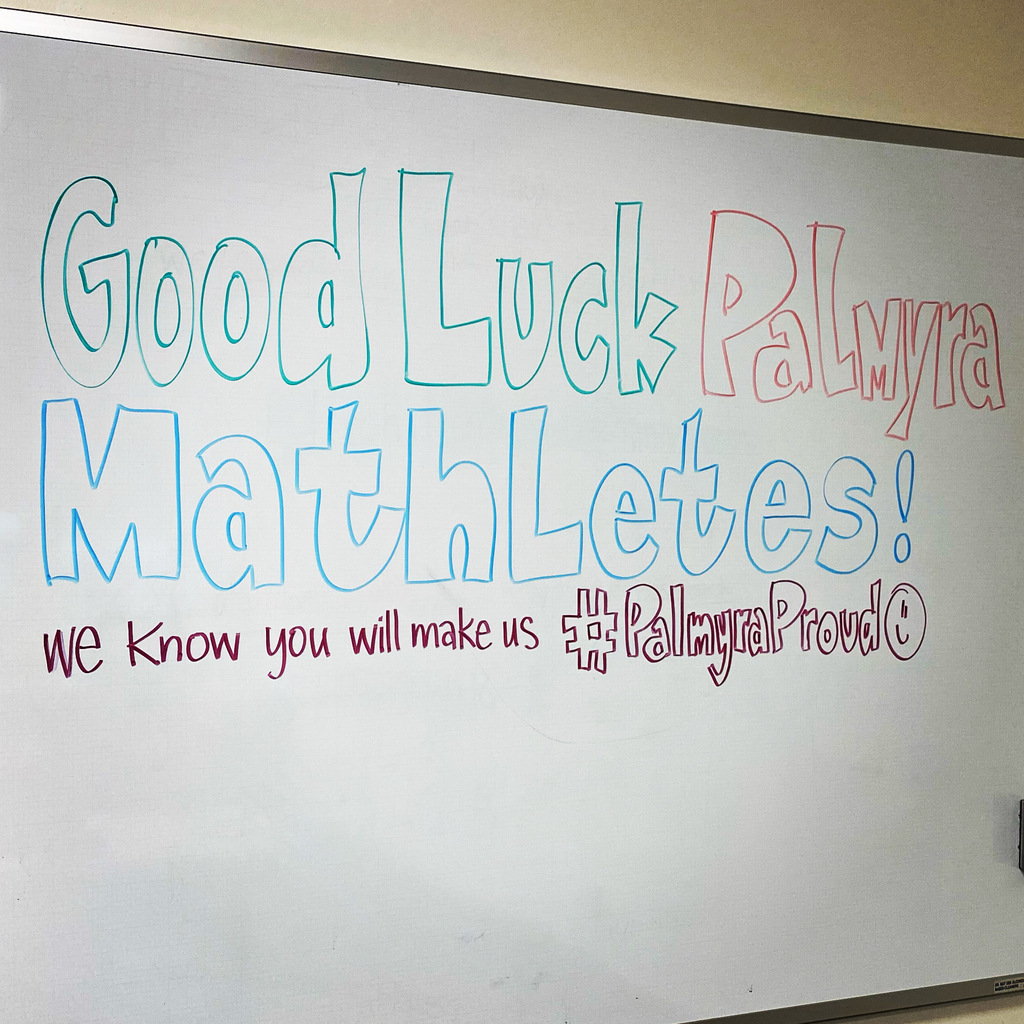 Good Luck Palmyra
Mathletes!
we know you will make us #PalmyraProud